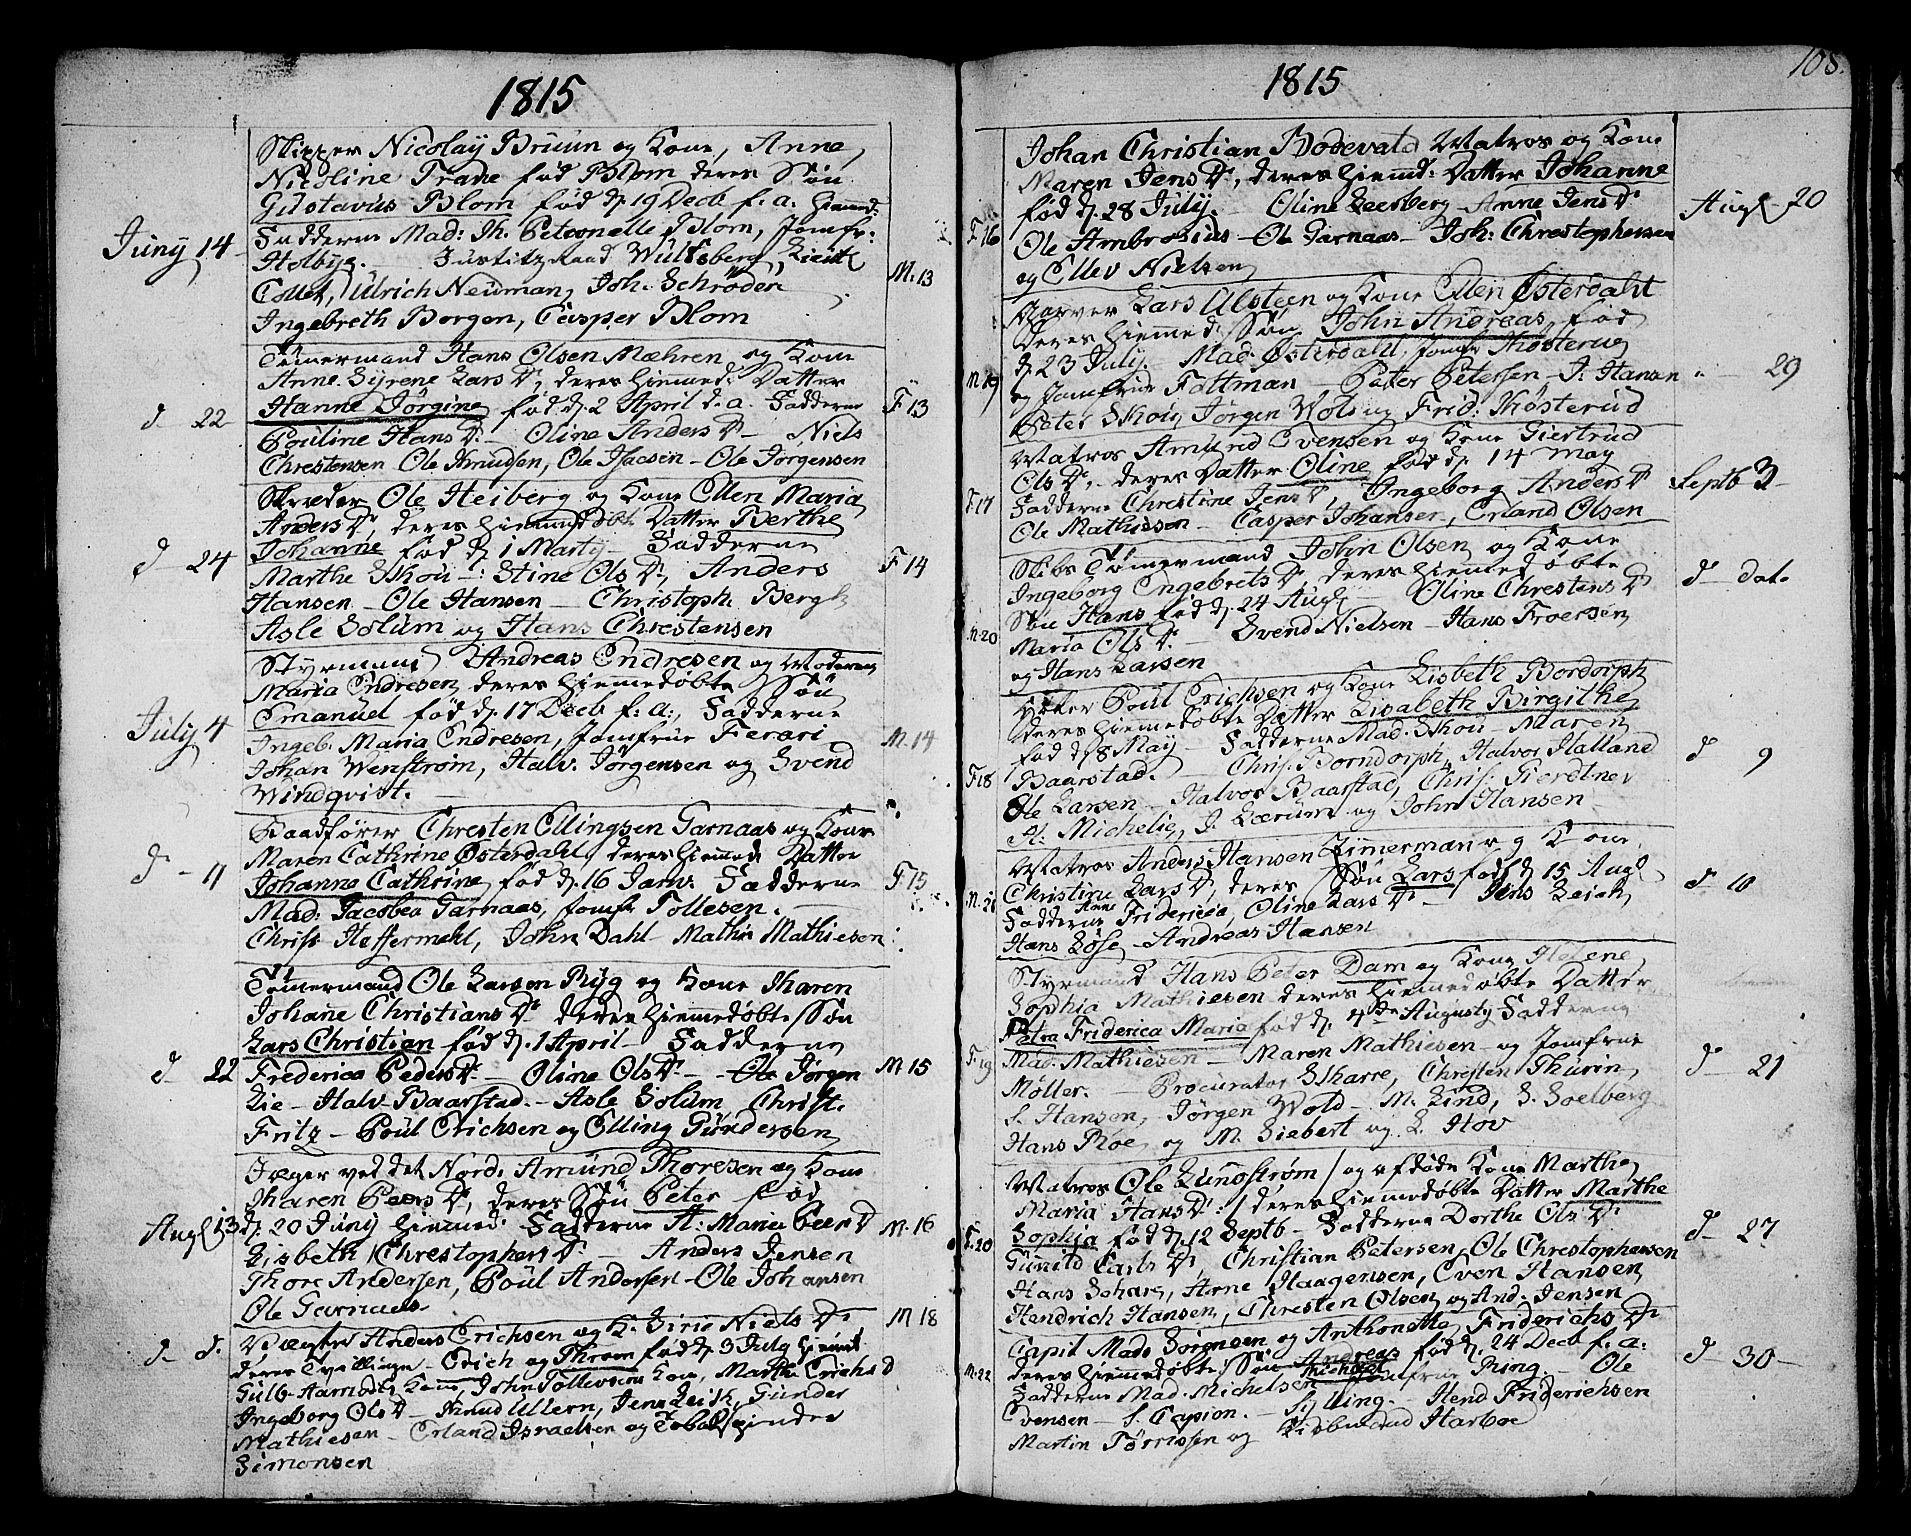 1815
Skipper Nicolay Bruun og Kone, Anne
Nicoline Trane fød Blom deres Søn
Gustavus Blom fød d. 19 Decb f. a. hiemed:
Juny 14
Fadderne Mad: Th. Petronelle Blom, Jomfr:
Justitzraad Wulfsberg, Lieut
Collet, Ulrich Neuman, Joh. Schrøder
M. 13
Ingebreth Borgen, Casper Blom
Tømermand Hans Olsen Mæhren og Kone
Anne Syrene Lars Dr, deres hiemed: Datter
d 22
Hanne Jørgine, fød d. 2 April d. a. Fadderne
F 13
Pouline Hans Dr. – Oline Anders Dr – Niels
Chrestensen – Ole Knudsen, Ole Isacsen – Ole Jørgensen
Skræder Ole Heiberg og Kone Ellen Maria
Anders Dr, deres hiemmedøbte Datter Berthe
d 24
Johanne fød d. 1 Marty – Fadderne
F 14
Marthe Skou –: Stine Ols Dr, Anders
Hansen – Ole Hansen – Christoph. Bergh
Asle Solum og Hans Chrestensen
Styrmand Andreas Endresen og Moderen
Maria Endresen, deres hiemedøbte Søn
July 4
Emanuel fød d. 17 Decb f: a:, Fadderne
Ingeb. Maria Endresen, Jomfrue Ferari
M. 14
Johan Wenstrøm, Halv. Jørgensen og Svend
Windqvist. –
Baadfører Chresten Ellingsen Garnaas og Kone
Maren Cathrine Østerdahl, deres hiemed: Datter
d – 11
Johanne Cathrine, fød d. 16 Janv. Fadderne
F. 15
Mad: Jacobea Garnaas, Jomfr Tollesen. –
Christ Heffermehl, John Dahl – Mathis Mathiesen
Tømermand Ole Larsen Ryg og Kone Karen
Johane Christians Dr deres hiemedøbte Søn
Lars Christian fød d. 1 April – Fadderne
d – 22
Frederica Peders Dr – Oline Ols Dr. – Ole Jørgen
M 15
Lie – Halv. Baarstad. – Asle Solum, Christ.
Fritz – Poul Erichsen og Elling Gundersen
Jæger ved det Nord. Amund Thoresen og Kone
Karen Peers Dr, deres Søn Peter fød
Augt 13
d. 20 Juny hiemed: Fadderne A: Maria Peers Dr
M. 16
Lisbeth Chrestophers Dr – Anders Jensen
Thore Andersen, Poul Andersen – Ole Johansen
Ole Garnaas
M 18
Vægter Anders Erichsen og K. Sirie Niels Dr,
d – d.
deres Tvillinger – Erich og Thron fød d. 3 July hiemed
Gulb. Kone, John Tollevsens Kone, Marthe Erichs D
Ingeborg Ols Dr – Knud Ullern, Jens Leith, Gunder
Mathiesen – Erland Israelsen og
Simonsen
1815
108.
Johan Christian Bodevald Matros og Kone
Maren Jens Dr, deres hiemd: Datter Johanne
fød d. 28 July. – Oline Leerberg – Anne Jens Dr
Augt 20
F 16
Ole Ambrosius – Ole Garnaas – Joh: Chrestophersen
og Ellev Nielsen
Garver Lars Ulsteen og Kone Ellen Østerdahl
deres hiemmed: Søn John Andreas, fød
d. 23 July. Mad. Østerdahl, Jomfr Kosterud
M 19
og Jomfrue Foltman – Peter Petersen – J: Hansen
29
Peter Skou, Jørgen Wols og Frid: Kosterud
Matros Amund Evensen og Kone Giertrud
Ols Dr. deres Datter Oline, fød d. 14 May
Septb 3
F 17
Fadderne Christine Jens Dr, Ingeborg Anders Dr
Ole Mathiesen – Casper Johansen, Erland Olsen
Skibs Tømermand John Olsen og Kone
Ingeborg Engebrets Dr, deres hiemedøbte
d – dato
Søn Hans fød d. 24 Augt – Oline Chrestens Dr
M 20
Maria Ols Dr. – Svend Nielsen – Hans Froersen
og Hans Larsen
Høker Poul Erichsen og Kone Lisbeth Bordorph
deres hiemmedøbte Datter Lisabeth Birgithe
fød d. 8 May – Fadderne Mad. Skou – Maren
d 9
F 18
Baarstad. – Chris. Borndorph, Halvor Halland
Ole Larsen – Halvor Baarstad, Chris: Gierdtner
A: Michelig, J. Lærum og John Hansen
Matros Anders Hansen Zimerman og Kone
Christine Lars Dr, deres Søn Lars fød d. 15 Augt
d 10
M. 21
Fadderne Anne Fridericca, Oline Lars Dr – Jens Leich
Hans Løse – Andreas Hansen
Styrmand Hans Peter Dam og Kone Helene
Sophia Mathiesen deres hiemedøbte Datter
Petra Friderica Maria fød d. 4de Augusty Fadderne
F. 19
Mad. Mathiesen – Maren Mathiesen – og Jomfrue
d – 21
Møller. – Procurator Skarre, Chresten Thurin,
S. Hansen, Jørgen Wold – M. Lind, S. Soelberg
Hans Roe, og M. Siebert og L. Hov
Matros Ole Lundstrøm / og afdøde Kone Marthe
Maria Hans Dr: / deres hiemedøbte Datter Marthe
F. 20
Sophia fød d. 12 Septb – Fadderne Dorthe Ols Dr
d – 27
Gunild Carls Dr, Christian Petersen, Ole Chrestophersen
Hans Schare, Arne Haagensen, Even Hansen
Hendrich Hansen, Chresten Olsen, og And. Jensen
Capit Mads Sørensen og Anthonette Friderichs Dr
deres hiemedøbte Søn Andreas Michael fød d. 24 Decb f. a:
d 30 –
M. 22
Fadderne Mad. Michelsen – Jomfrue Ring. – Ole
Evensen – S. Capion. – Sylling. – Hend Friderichsen
Martin Tørrissen og Harboe